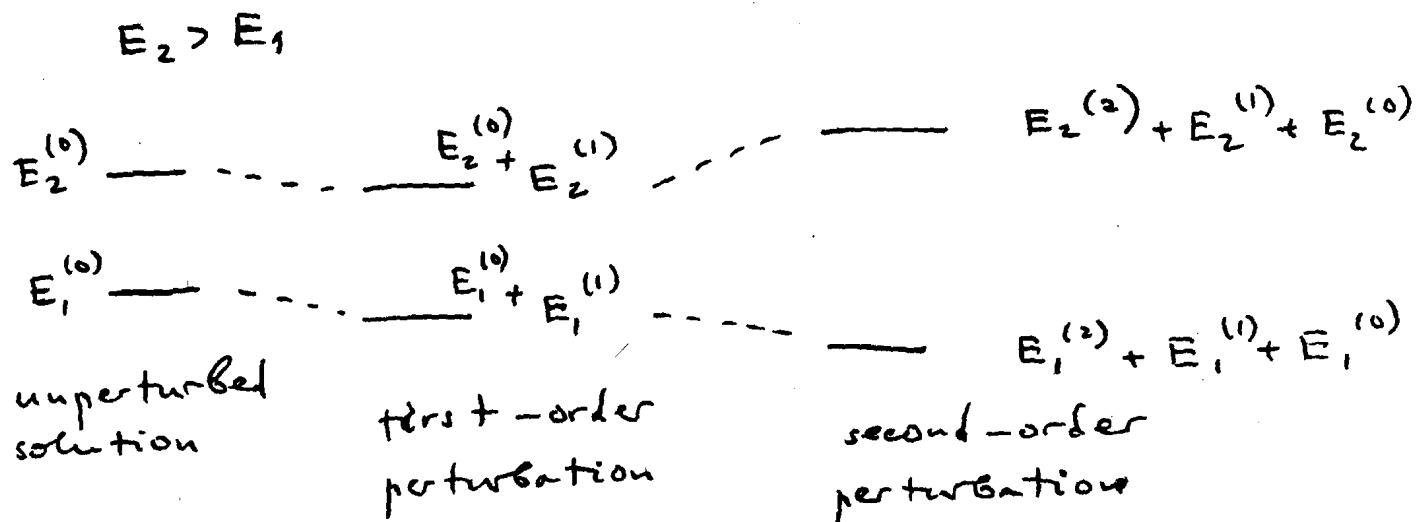 E₂ > E₁
E₂⁽⁰⁾
E₂⁽⁰⁾ + E₂⁽¹⁾
E₂⁽²⁾ + E₂⁽¹⁾ + E₂⁽⁰⁾
E₁⁽⁰⁾
E₁⁽⁰⁾ + E₁⁽¹⁾
E₁⁽²⁾ + E₁⁽¹⁾ + E₁⁽⁰⁾
unperturbed
solution
first-order
perturbation
second-order
perturbation